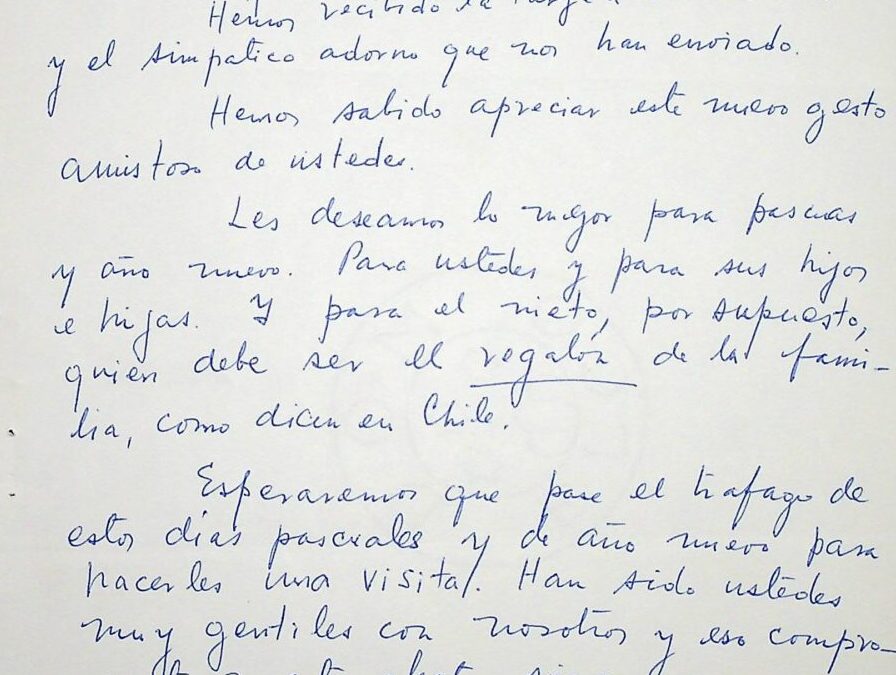 Hemos recibido la
y el simpatico adorno que nos han enviado.
Hemos sabido apreciar este nuevo gesto
amistoso de ustedes.
Les deseamos lo mejor para pascuas
y año nuevo. Para ustedes y para sus hijos
e hijas. Y para el nieto, por supuesto,
quien debe ser el regalón de la fami-
lia, como dicen en Chile.
Esperaremos que pase el trafago de
estos días pascuales y de año nuevo para
hacerles una visita. Han sido ustedes
muy gentiles con nosotros y eso compro-